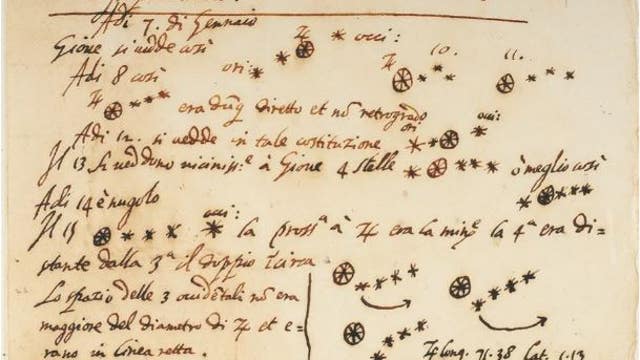 Adi 7. di Gennaio
Gione si vedde così ♃ * occi:
Adi 8 così ori: ♃ 10. 11.
♃ era dūq diretto et nō retrogrado
Adi 12. si vedde in tale costituzione ori occi:
Il 13 si veddono vicinissᵉ à Gione 4 stelle ò meglio così
Adi 14 è nugolo
Il 15 occi: la prossᵃ à ♃ era la minᵉ la 4ᵃ era di=
stante dalla 3ᵃ il doppio ī circa
Lo spazio delle 3 occidētali nō era
maggiore del diametro di ♃ et e=
rano in linea retta.
♃ long. 71.38 Lat. 1.13